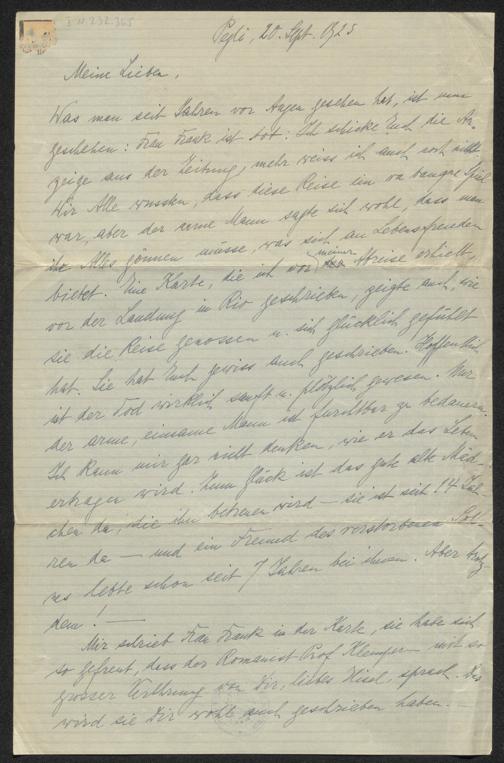 I.N. 232.365
Pegli, 20. Sept. 1925
Meine Lieben,
Was man seit Jahren vor Augen gesehen hat, ist nun
geschehen: Frau Frank ist tot: Ich schicke Euch die An-
zeige aus der Zeitung, mehr weiss ich auch noch nicht
Wir Alle wussten, dass diese Reise ein va banque Spiel
war, aber der arme Mann sagte sich wohl, dass man
ihr Alles gönnen müsse, was sich an Lebensfreuden
bietet. Eine Karte, die ich vor meiner Abreise erhielt,
vor der Landung in Rio geschrieben, zeigte auch, wie
sie die Reise genossen u. sich glücklich gefühlt
hat. Sie hat Euch gewiss auch geschrieben. Hoffentlich
ist der Tod wirklich sanft u. plötzlich gewesen. Nur
der arme, einsame Mann ist furchtbar zu bedauern.
Ich kann mir gar nicht denken, wie er das Leben
ertragen wird. Zum Glück ist das gute alte Mäd-
chen da, die ihn betreuen wird — sie ist seit 14 Jah-
ren da — und ein Freund des verstorbenen Soh-
nes lebte schon seit 7 Jahren bei ihnen. Aber trotz-
dem! —
Mir schrieb Frau Frank in der Karte, sie habe sich
so gefreut, dass der Romanist Prof. Klemperer mit so
grosser Verehrung von Dir, lieber sprach. Das
wird sie Dir wohl auch geschrieben haben. —